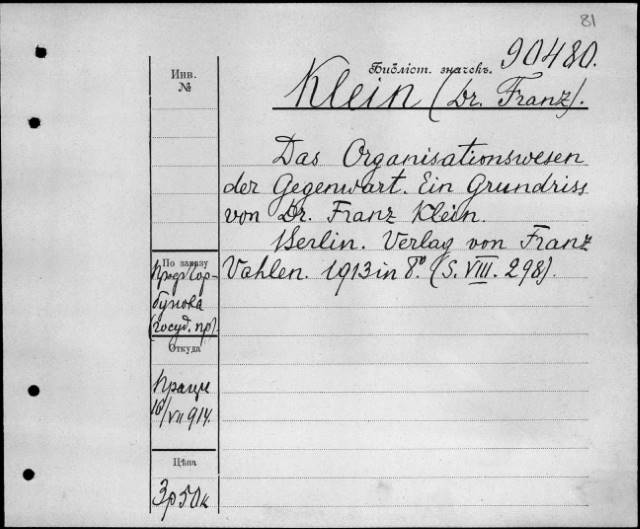 81
Инв.
№
Библіот. значекъ. 90480.
Klein (Dr. Franz).
Das Organisationswesen
der Gegenwart. Ein Grundriss
von Dr. Franz Klein.
Berlin. Verlag von Franz
Vahlen. 1913 in 8°. (S. VIII. 298).
По заказу
Проф. Гор-
бунова
(госуд. пр).
Откуда
16/VII 914.
Цѣна
3р 50к